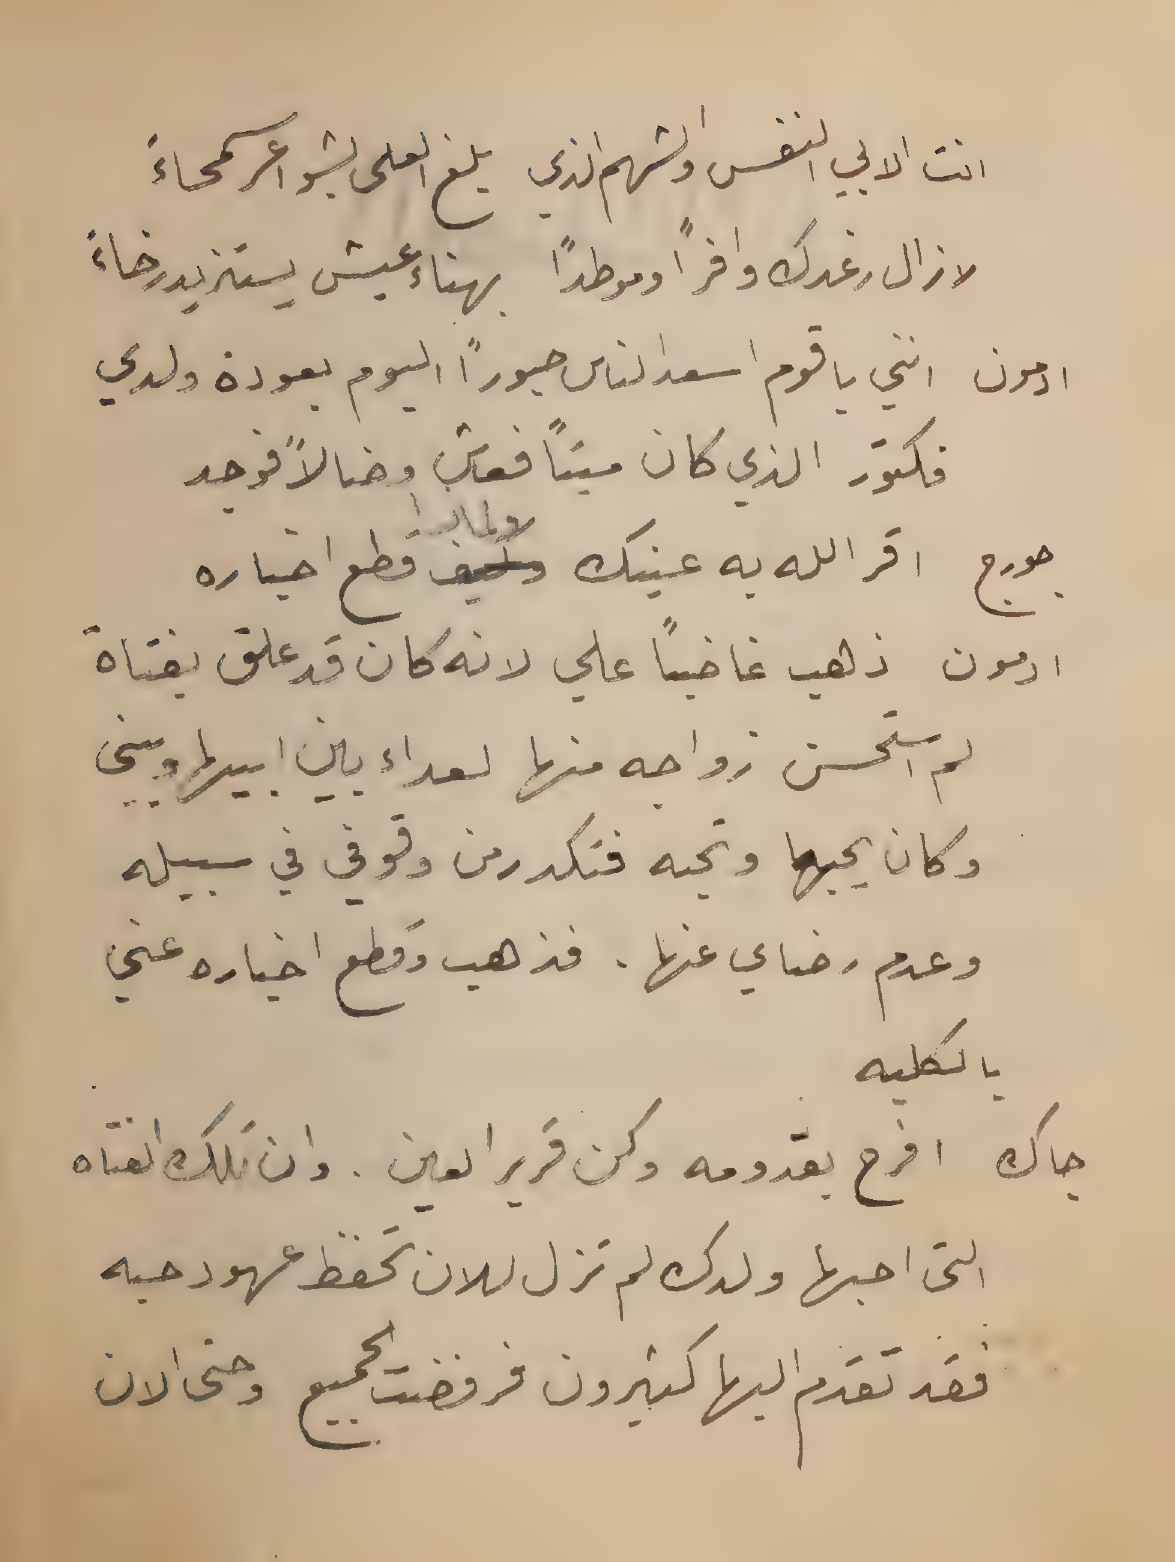 انت الابي النفس والشهم الذي يلغ العلى بشواعر سمحاءً
لا زال رغدك وافراً وموطداً بهناء عيش يستزيد رخاءً
ادمون انني يا قوم اسعد الناس حبوراً اليوم بعودة ولدي
فكتور الذي كان ميتاً فعاش وضالاً فوجد
جورج اقر الله به عينيك ولماذا قطع اخباره
ادمون ذهب غاضباً علي لانه كان قد علق بفتاة
لم استحسن زواجه منها لعداء بين ابيها وبيني
وكان يحبها وتحبه فتكدر من وقوفي في سبيله
وعدم رضاي عنها . فذهب وقطع اخباره عني
بالكليه
جاك افرح بقدومه وكن قرير العين . وان تلك الفتاه
التي احبها ولدك لم تزل للان تحفظ عهود حبه
فقد تقدم اليها كثيرون فرفضت الجميع وحتى الان